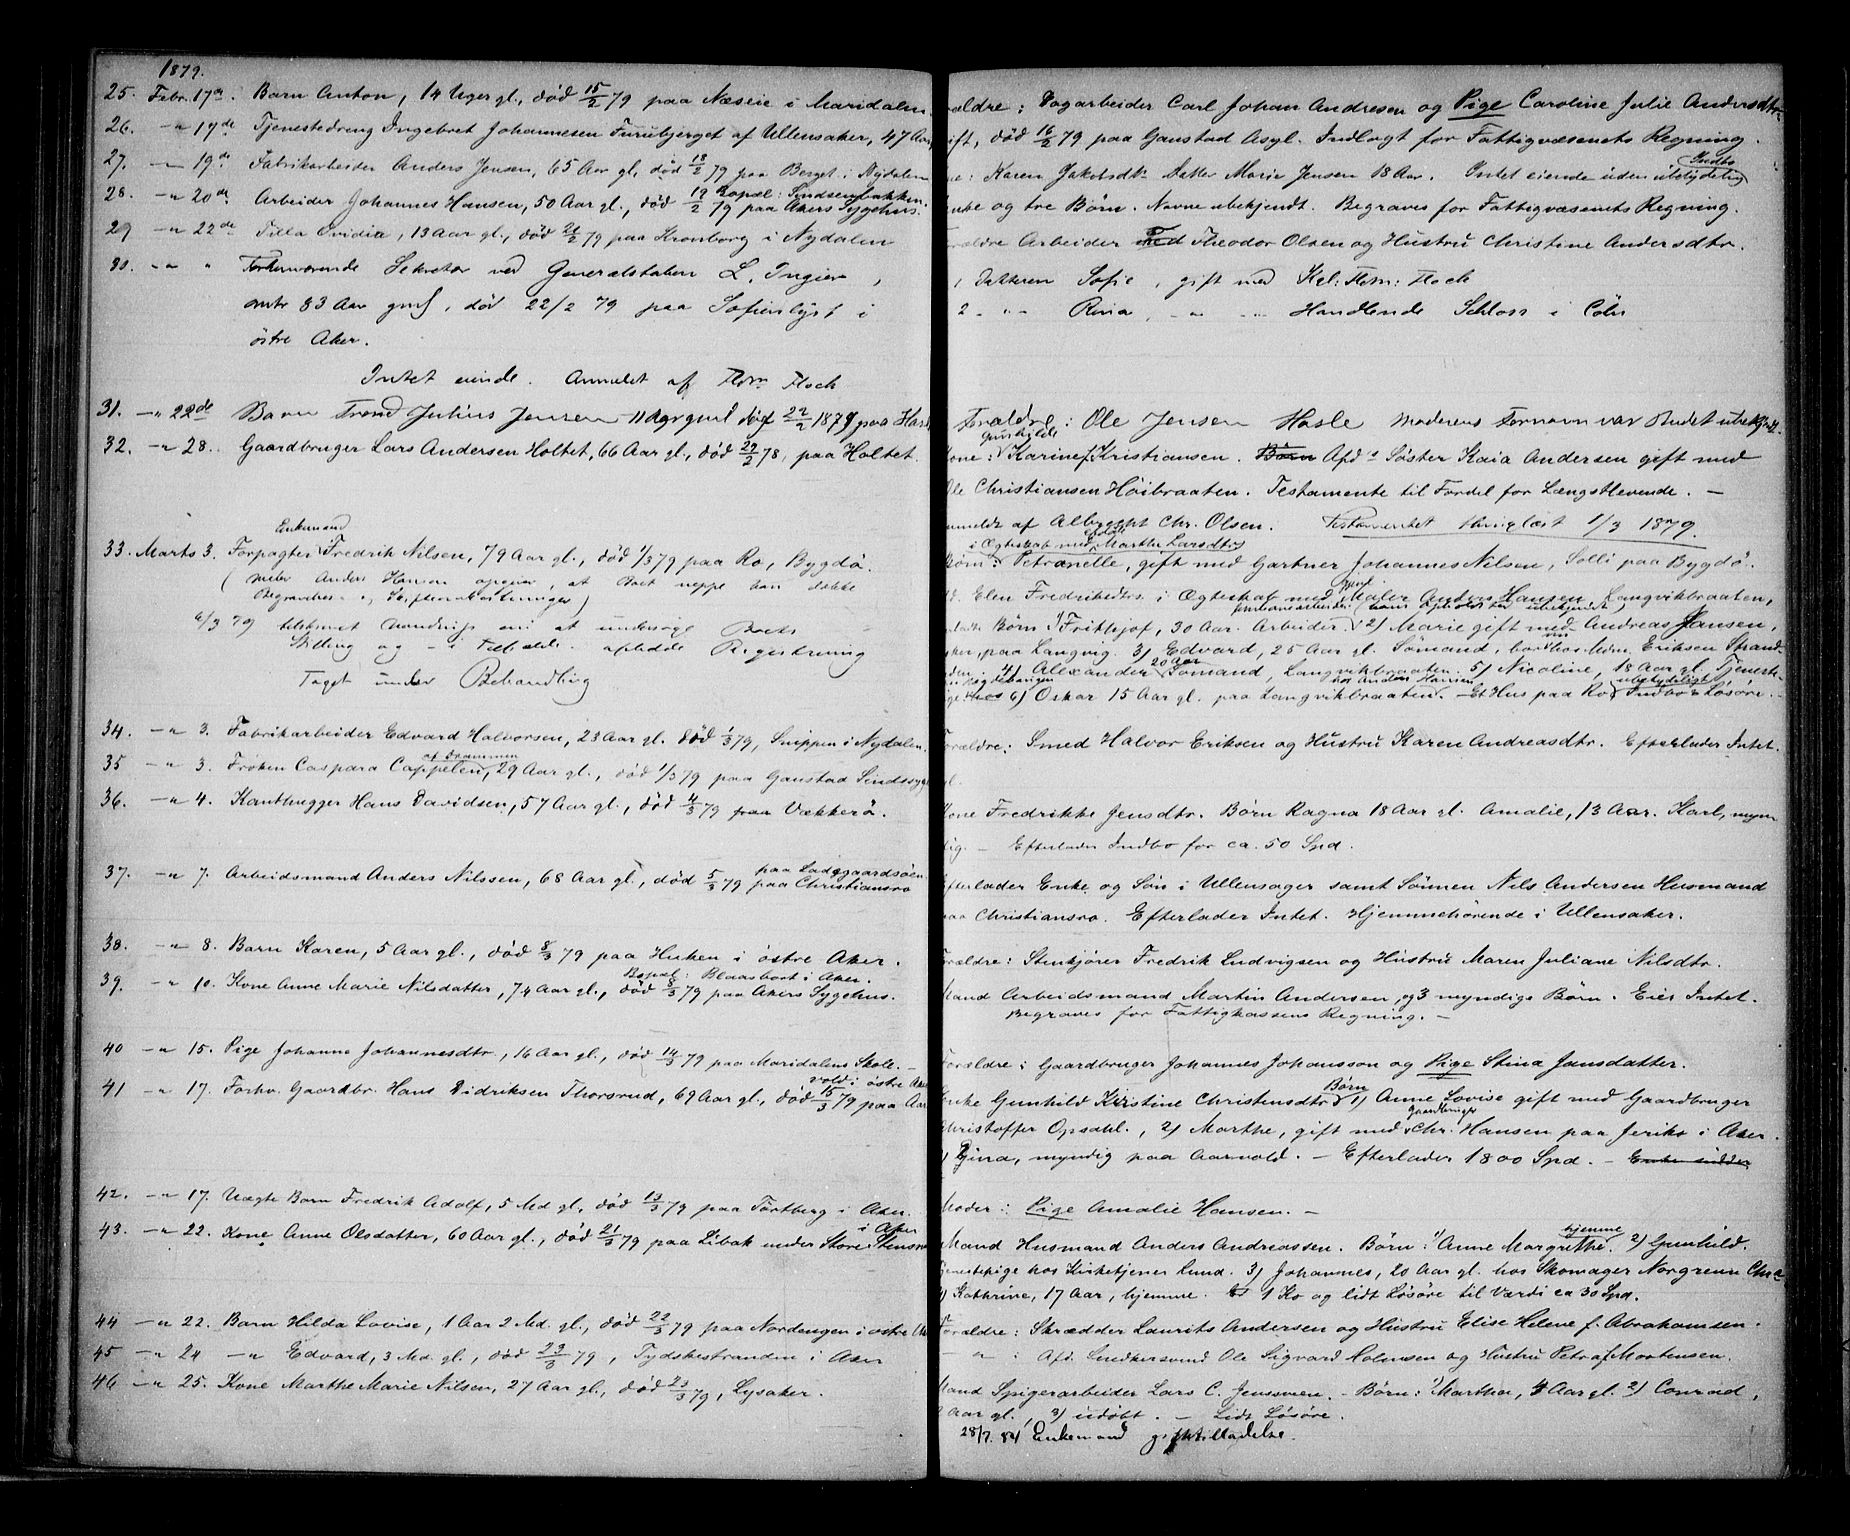 1879.
25. Febr. 17de. Barn Anton, 14 Uger gl., død 15/2 79 paa Næseie i Maridalen
26. -"- 17de Tjenestedreng Ingebret Johannesen Furubjerget af Ullensaker, 47 Aar
27. -"- 19de Fabrikarbeider Anders Jensen, 65 Aar gl., død 18/2 79 paa Berget i Nydalen
28. -"- 20de Arbeider Johannes Hansen, 50 Aar gl., død 19/2 79 paa Akers Sygehus. Bopæl: Sindsenbakken.
29 -"- 22de Tilla Ovidia, 13 Aar gl., død 21/2 79 paa Kronborg i Nydalen
30. -"- " Forhenværende Sekretær ved Generalstaben L. Ingier,
antr 83 Aar gml, død 22/2 79 paa Sofienlyst i
østre Aker.
Intet eiende. Anmeldt af Flock
31. -"- 22de Barn Trond Julius Jensen 11 gml død 22/2 1879 paa Hasl
32. -"- 28. Gaardbruger Lars Andersen Holtet, 66 Aar gl., død 27/2 78, paa Holtet.
Enkemand
33. Marts 3. Forpagter Fredrik Nilsen, 79 Aar gl., død 1/3 79 paa Ro, Bygdø.
(Maler Anders Hansen opgiver, at Boet neppe kan dække
Begravelses- og Skifteomkostninger)
6/3 79 at undersøge Boets
Stilling og - i Tilfælde afholde Registrering
Taget under Behandling
34. -"- 3. Fabrikarbeider Edvard Halvorsen, 23 Aar gl. død 1/3 79, Snippen i Nydalen.
af Drammen
35 -"- 3. Frøken Caspara Cappelen, 29 Aar gl., død 1/3 79 paa Gaustad Sindssyg
36. -"- 4. Kanthugger Hans Davidsen, 57 Aar gl., død 4/3 79 paa Vækkerø.
37. -"- 7. Arbeidsmand Anders Nilssen, 68 Aar gl., død 5/3 79 paa Christiansro paa Ladegaardsøen
38. -"- 8. Barn Karen, 5 Aar gl., død 8/3 79 paa Huken i østre Aker.
39. -"- 10. Kone Anne Marie Nilsdatter, 74 Aar gl., død 8/3 79 paa Akers Sygehus. Bopæl: Blaasbort i Aker.
40 -"- 15. Pige Johanne Johannesdtr, 16 Aar gl., død 14/3 79 paa Maridalens Skole. -
41 -"- 17. Forhv. Gaardbr. Hans Didriksen Thorsrud, 69 Aar gl., død 15/3 79 paa Aar
vold i østre Aker
42. -"- 17. Uægte Barn Fredrik Adolf, 5 Md. gl., død 13/3 79 paa Tørtberg i Aker.
43. -"- 22. Kone Anne Olsdatter, 60 Aar gl., død 21/3 79 paa Libak under Store Stensrud i Aker
44 -"- 22. Barn Hilda Lovise, 1 Aar 2 Md. gl., død 22/3 79 paa Nordengen i østre Ake
45 -"- 24 -"- Edvard, 3 Md. gl., død 23/3 79, Tydskestranden i Aker
46 -"- 25. Kone Marthe Marie Nilsen, 27 Aar gl., død 23/3 79, Lysaker.
ældre: Dagarbeider Carl Johan Andresen og Pige Caroline Julie Andersdtr
ift, død 16/2 79 paa Gaustad Asyl. Indlagt for Fattigvæsenets Regning.
ne: Karen Jakobsdtr. Datter Marie Jensen 18 Aar. Intet eiende uden ubetydelig Indbo
nke og tre Børn. Navne ubekjendt. Begraves for Fattigvæsenets Regning.
orældre Arbeider Fred Theodor Olsen og Hustru Christine Andersdtr.
1 Datteren Sofie, gift med Flock
2 -"- Rina, -"- -"- Handlende Schloss i Cøln
Forældre: Ole Jensen Hasle Moderens Fornavn var Budet ubekjendt.
Gunhilde
one: Karine f. Kristiansen. Børn Afds Søster Kaia Andersen gift med
Ole Christiansen Høibraaten. Testamente til Fordel for Længstlevende. -
nmeldt af Albrecht Chr. Olsen. Testamentet thinglæst 1/3 1879.
i Ægteskab med Marthe Larsdtr
Børn: Petronelle, gift med Gartner Johannes Nilsen, Solli paa Bygdø.
Elen Fredriksdtr i Ægteskab med Maler Anders Hansen, Langvikbraaten,
Børn 1) Frithjof, 30 Aar. Arbeider. 2) Marie gift med Andreas Jansen,
paa Langvig. 3) Edvard, 25 Aar gl. Sømand, Eriksen Strand
4) Alexander 20 Aar Sømand, Langvikbraaten. 5) Nicoline, 18 Aar gl. Tjeneste-
hos 6) Oskar 15 Aar gl. paa Langvikbraaten hos Anders Hansen. - Et Hus paa Ro, ubetydeligt Indbo & Løsøre. -
orældre: Smed Halvor Eriksen og Hustru Karen Andreasdtr. Efterlader Intet.
yl.
one Fredrikke Jensdtr. Børn Ragna 18 Aar gl. Amalie, 13 Aar. Karl, myn
dig. - Efterlader Indbo for ca. 50 Spd.
fterlader Enke og Søn i Ullensager samt Sønnen Nils Andersen Husmand
paa Christiansro. Efterlader Intet. Hjemmehørende i Ullensaker.
orældre: Stenkjører Fredrik Ludvigsen og Hustru Maren Juliane Nilsdtr.
Mand Arbeidsmand Martin Andersen, og 3 myndige Børn. Eier Intet.
Begraves for Fattigkassens Regning. -
Forældre: Gaardbruger Johannes Johansson og Pige Stina Jansdatter.
Enke Gunhild Kirstine Christensdtr Børn 1) Anne Lovise gift med Gaardbruger
Christoffer Opsahl., 2) Marthe, gift med Gaardbruger Chr. Hansen paa Jeriko i Aker.
3) Gina, myndig paa Aarvold. - Efterlader 1800 Spd. - Enke sidder
Moder: Pige Amalie Hansen. -
Mand Husmand Anders Andreassen. Børn: 1) Anne Margrethe hjemme. 2) Gunhild.
Tjenestepige hos Kirketjener Lund. 3) Johannes, 20 Aar gl. hos Skomager Norgrenn Chra
4) Kathrine, 17 Aar, hjemme. Et 1 Ko og lidt Løsøre til Værdi ca 30 Spd.
Forældre: Skrædder Laurits Andersen og Hustru Elise Helene f. Abrahamsen.
- " - : Afd. Snedkersvend Ole Sigvard Holmsen og Hustru Petra f. Mortensen.
Mand Spigerarbeider Lars C. Jenssveen. - Børn: 1) Martha, 4 Aar gl. 2) Conrad,
Aar gl., 3) udøbt. - Lidt Løsøre.
28/7. 84 Enkemand giftetilladelse.